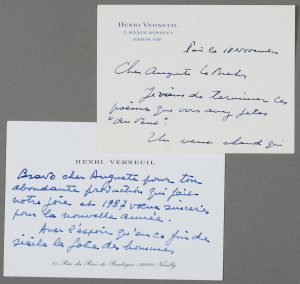 HENRI VERNEUIL
5, AVENUE BOSQUET
PARIS-VIIe
18 Novembre
Cher Auguste Le Breton
Je viens de terminer ces
poèmes que vous avez jetés
"au vent"
Un vent chaud qui
HENRI VERNEUIL
Bravo cher Auguste pour ton
abondante production qui fait
notre joie et 1987 vœux sincères
pour la nouvelle année.
Avec l'espoir qu'en ce fin de
siècle la folie des hommes
Rue du Bois de Boulogne, Neuilly